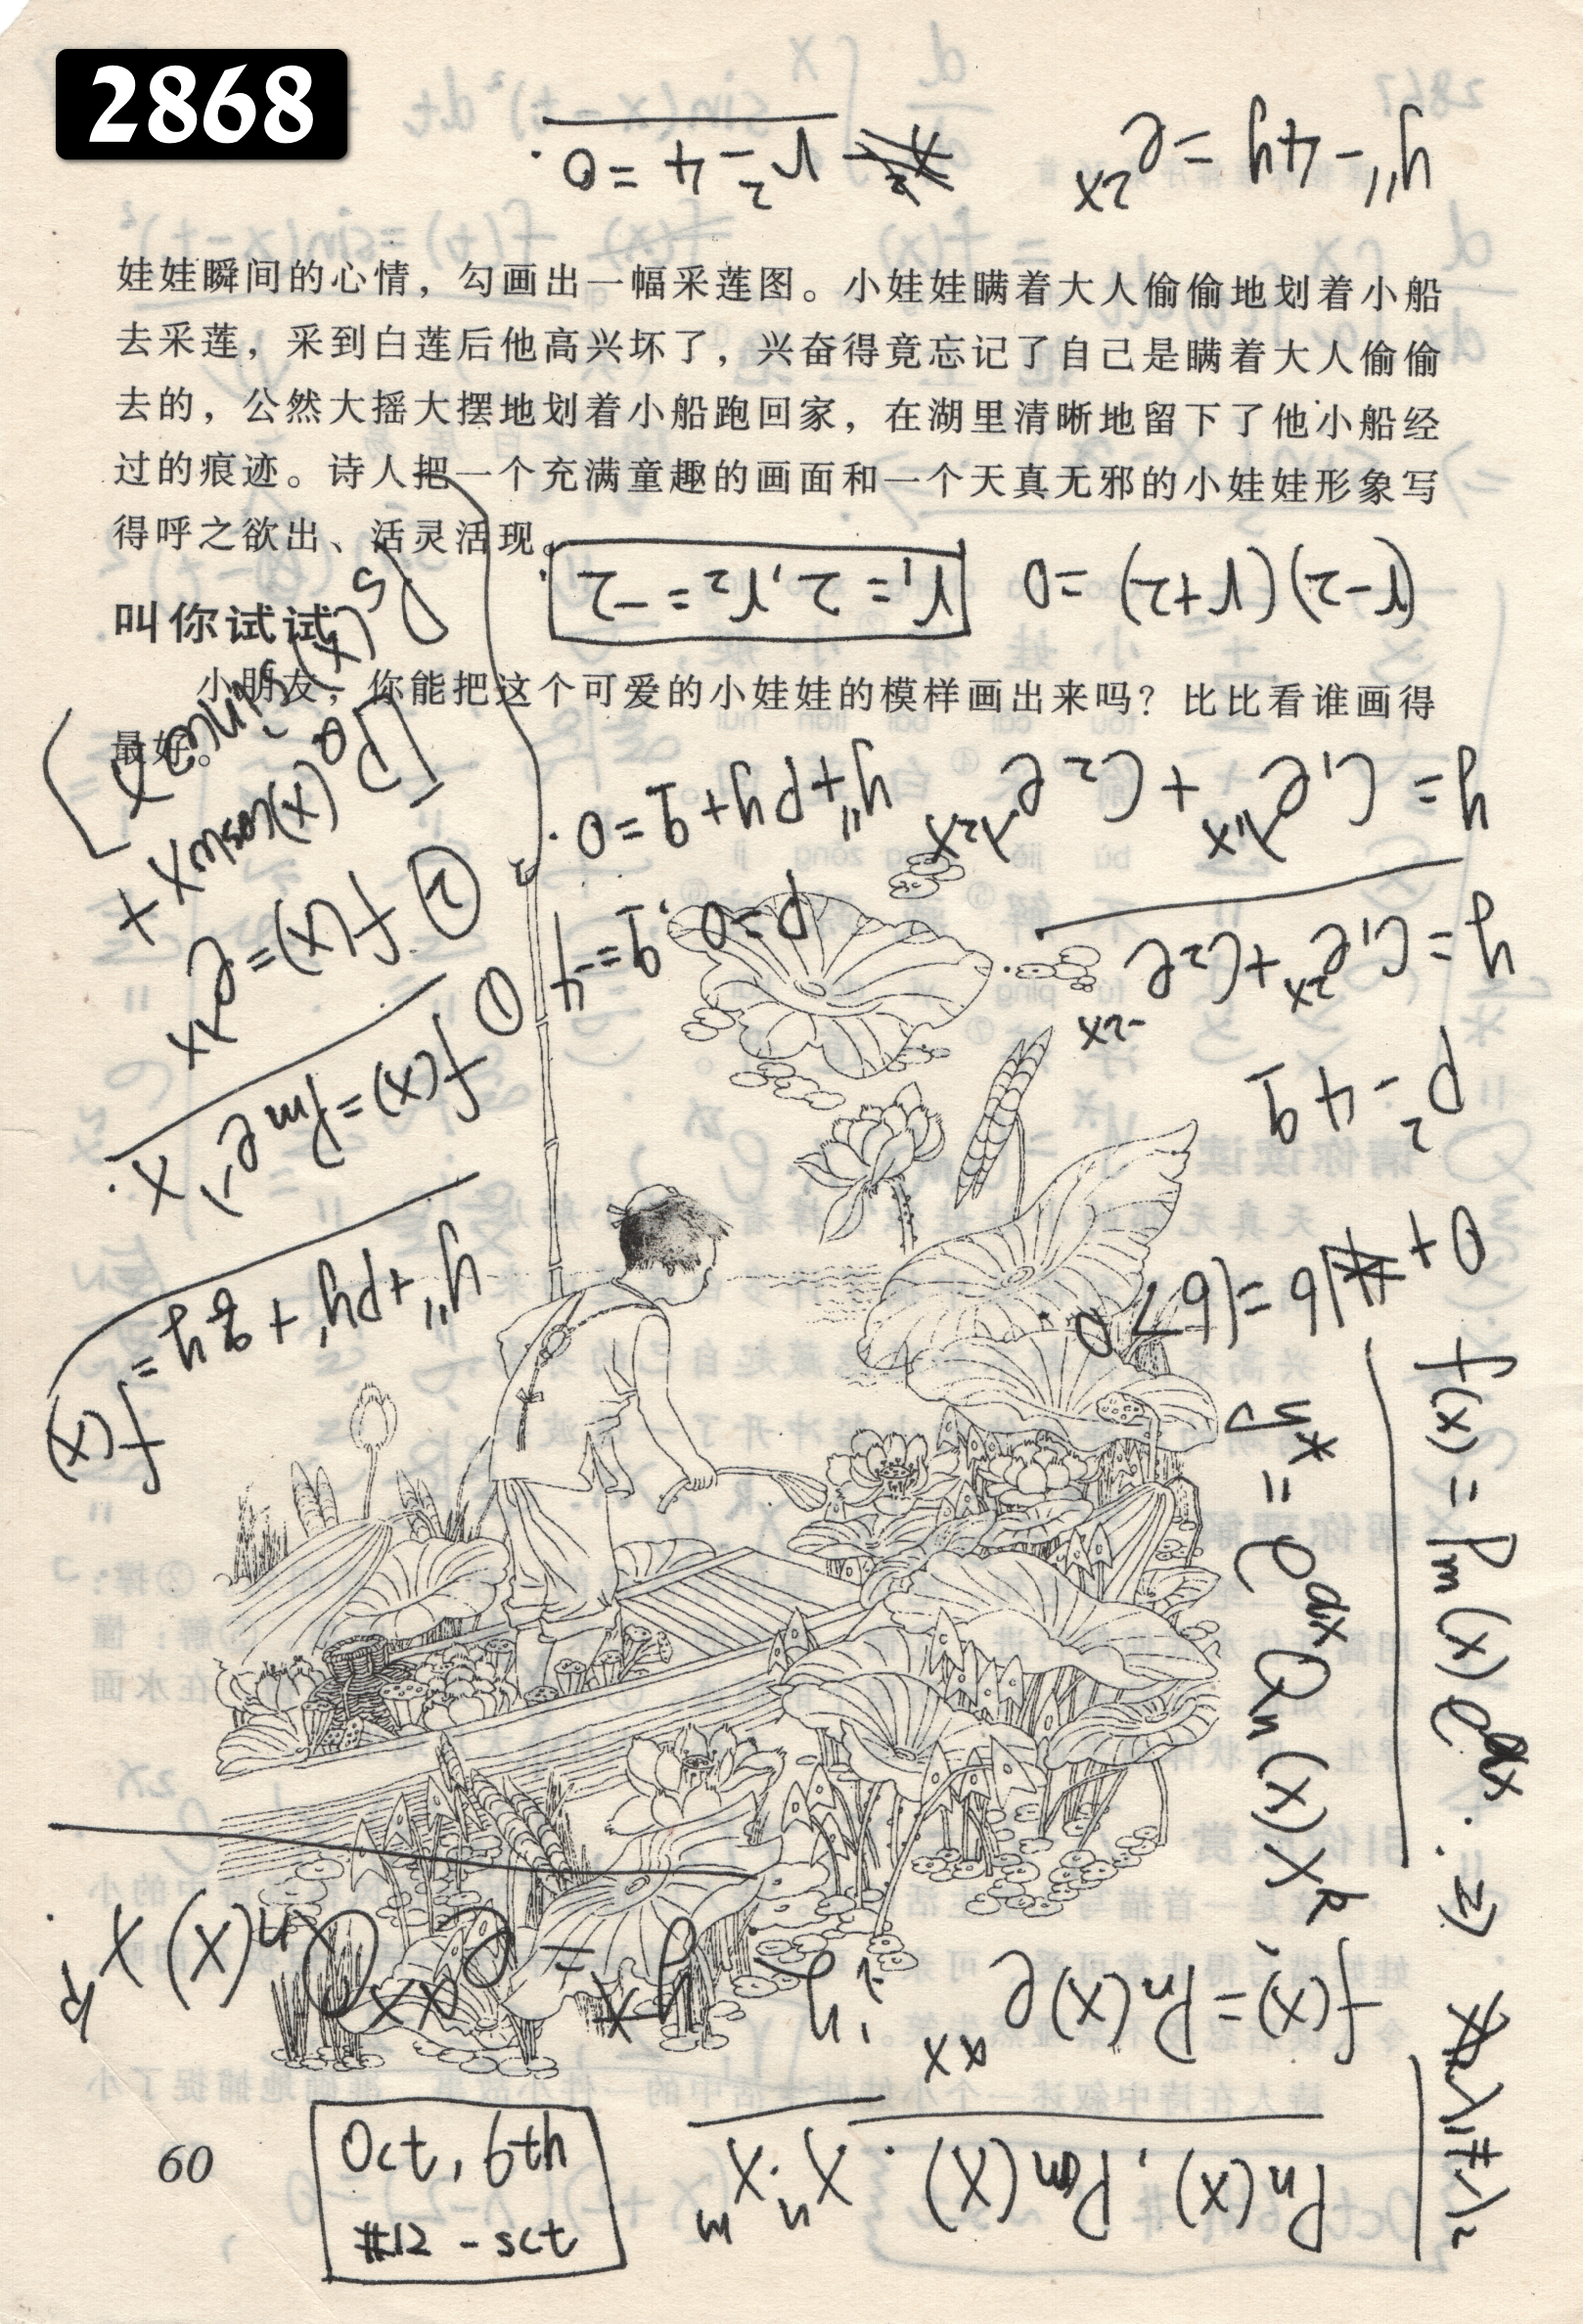 2868
y'' - 4y = e^{2x}
r² - 4 = 0.
娃娃瞬间的心情，勾画出一幅采莲图。小娃娃瞒着大人偷偷地划着小船
去采莲，采到白莲后他高兴坏了，兴奋得竟忘记了自己是瞒着大人偷偷
去的，公然大摇大摆地划着小船跑回家，在湖里清晰地留下了他小船经
过的痕迹。诗人把一个充满童趣的画面和一个天真无邪的小娃娃形象写
得呼之欲出、活灵活现。
(r-2)(r+2) = 0
r₁ = 2, r₂ = -2
叫你试试
小朋友，你能把这个可爱的小娃娃的模样画出来吗？比比看谁画得
最好。
y = C₁e^{λ₁x} + C₂e^{λ₂x}
y'' + py + q = 0.
y = C₁e^{2x} + C₂e^{-2x}
p = 0, q = -4
p² - 4q
0 + 16 = 16 > 0
y'' + py' + qy = f(x)
① f(x) = Pm e^{λx}.
② f(x) = e^{λx}
[Pe(x)coswx +
Ps(x)sinwx]
f(x) = Pm(x)e^{αx}. ⇒
y* = e^{αx}Qn(x)x^k
λ₁ ≠ λ₂
f(x) = Pn(x)e^{αx}
y* = e^{αx}Qn(x)x^k.
Pn(x), Pm(x). x^n. x^m
Oct, 6th
#12 - sct
60